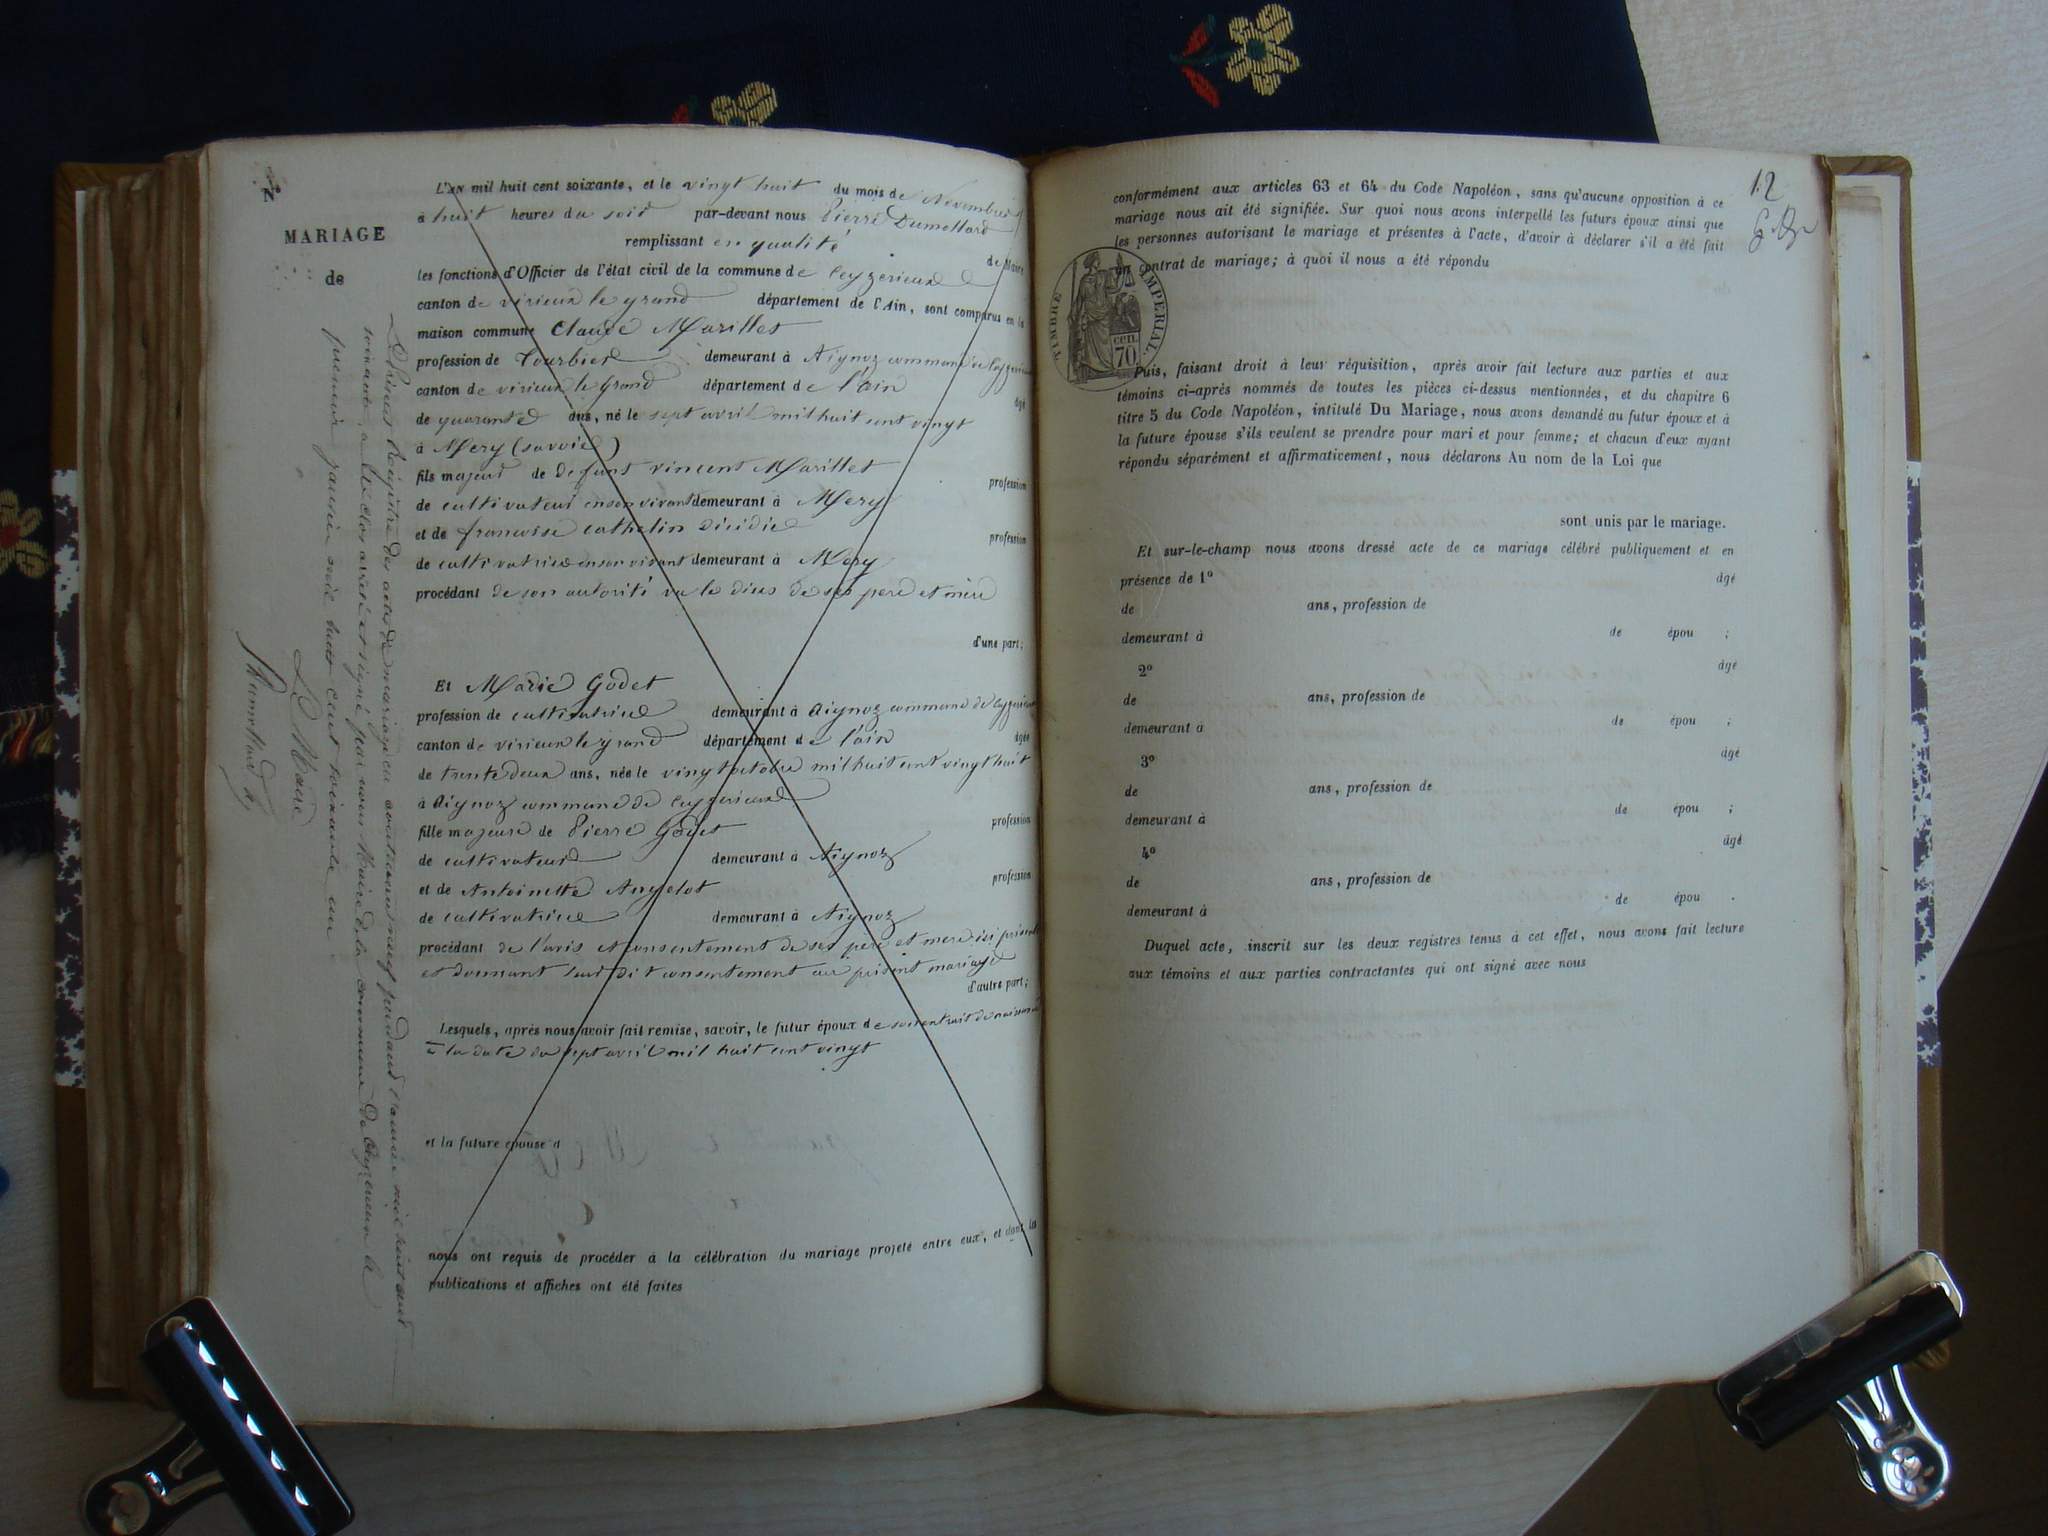 N°
MARIAGE
de
L'AN mil huit cent soixante, et le vingt huit du mois de Novembre
à huit heures du soir par-devant nous Pierre Dumollard
remplissant en qualité de Maire
les fonctions d'Officier de l'état civil de la commune de Ceyzerieux
canton de virieux le grand département de l'Ain, sont comparus en la
maison commune Claude Marillet
profession de Tourbier demeurant à Aignoz commune de Ceyzerieux
canton de virieux le Grand département de l'ain âgé
de quarante ans, né le sept avril mil huit cent vingt
à Mery (savoie)
fils majeur de defunt vincent Marillet profession
de cultivateur en son vivant demeurant à Mery
et de francoise cathelin profession
de cultivatrice en son vivant demeurant à Mery
procédant de son autorité vu le déces de ses pere et mere
d'une part;
Et Marie Godet
profession de cultivatrice demeurant à Aignoz commune de Ceyzerieux
canton de virieux le grand département de l'ain âgée
de trente deux ans, née le vingt octobre mil huit cent vingt huit
à Aignoz commune de Ceyzerieux
fille majeure de Pierre Godet profession
de cultivateur demeurant à Aignoz
et de Antoinette Angelot profession
de cultivatrice demeurant à Aignoz
procédant de l'avis et consentement de ses père et mere ici présents
et donnant leur dit consentement au présent mariage
d'autre part;
Lesquels, après nous avoir fait remise, savoir, le futur époux de son extrait de naissance
à la date du sept avril mil huit cent vingt
et la future épouse d
nous ont requis de procéder à la célébration du mariage projeté entre eux, et dont la
publications et affiches ont été faites
Le Présent Registre des actes de mariage en contenant neuf pendant l'année mil huit cent
soixante, a été clos arrêté et signé par nous Maire de la commune de Ceyzerieux le
premier janvier mil huit cent soixante un
Le Maire
Dumollard
12
conformément aux articles 63 et 64 du Code Napoléon, sans qu'aucune opposition à ce
mariage nous ait été signifiée. Sur quoi nous avons interpellé les futurs époux ainsi que
les personnes autorisant le mariage et présentes à l'acte, d'avoir à déclarer s'il a été fait
un contrat de mariage; à quoi il nous a été répondu
TIMBRE IMPERIAL
CEN.
70
Puis, faisant droit à leur réquisition, après avoir fait lecture aux parties et aux
témoins ci-après nommés de toutes les pièces ci-dessus mentionnées, et du chapitre 6
titre 5 du Code Napoléon, intitulé Du Mariage, nous avons demandé au futur époux et à
la future épouse s'ils veulent se prendre pour mari et pour femme; et chacun d'eux ayant
répondu séparément et affirmativement, nous déclarons Au nom de la Loi que
sont unis par le mariage.
Et sur-le-champ nous avons dressé acte de ce mariage célébré publiquement et en
présence de 1° âgé
de ans, profession de
demeurant à de épou ;
2° âgé
de ans, profession de
demeurant à de épou ;
3° âgé
de ans, profession de
demeurant à de épou ;
4° âgé
de ans, profession de
demeurant à de épou .
Duquel acte, inscrit sur les deux registres tenus à cet effet, nous avons fait lecture
aux témoins et aux parties contractantes qui ont signé avec nous